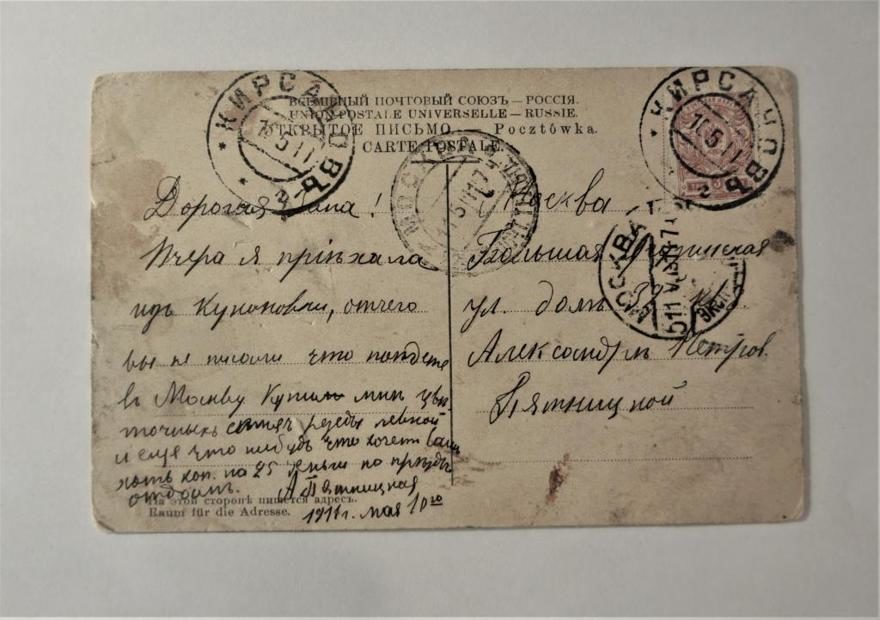 ВСЕМІРНЫЙ ПОЧТОВЫЙ СОЮЗЪ — РОССІЯ.
UNION POSTALE UNIVERSELLE — RUSSIE.
ОТКРЫТОЕ ПИСЬМО. — Pocztówka.
CARTE POSTALE.
КИРСАНОВЪ
10 5 11
КИРСАНОВЪ
10 5 11
МОСКВА
МОСКВА
Дорогая !
Вчера я пріѣхала
отчего
вы не писали что поѣдете
въ Москву Купить мнѣ
резеды
и еще что нибудь что хочет
хоть коп. на 25 деньги по пріѣздѣ
отдамъ. А Пятницкая
1911 г. мая 10го
Москва
Большая
ул. домъ кв.
Александръ Петров.
Пятницкой
На этой сторонѣ пишется адресъ.
Raum für die Adresse.